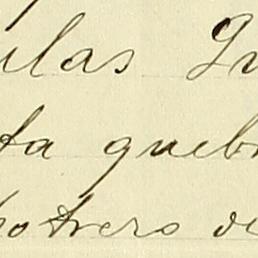 ulas Qu
ta quebr
potrero de